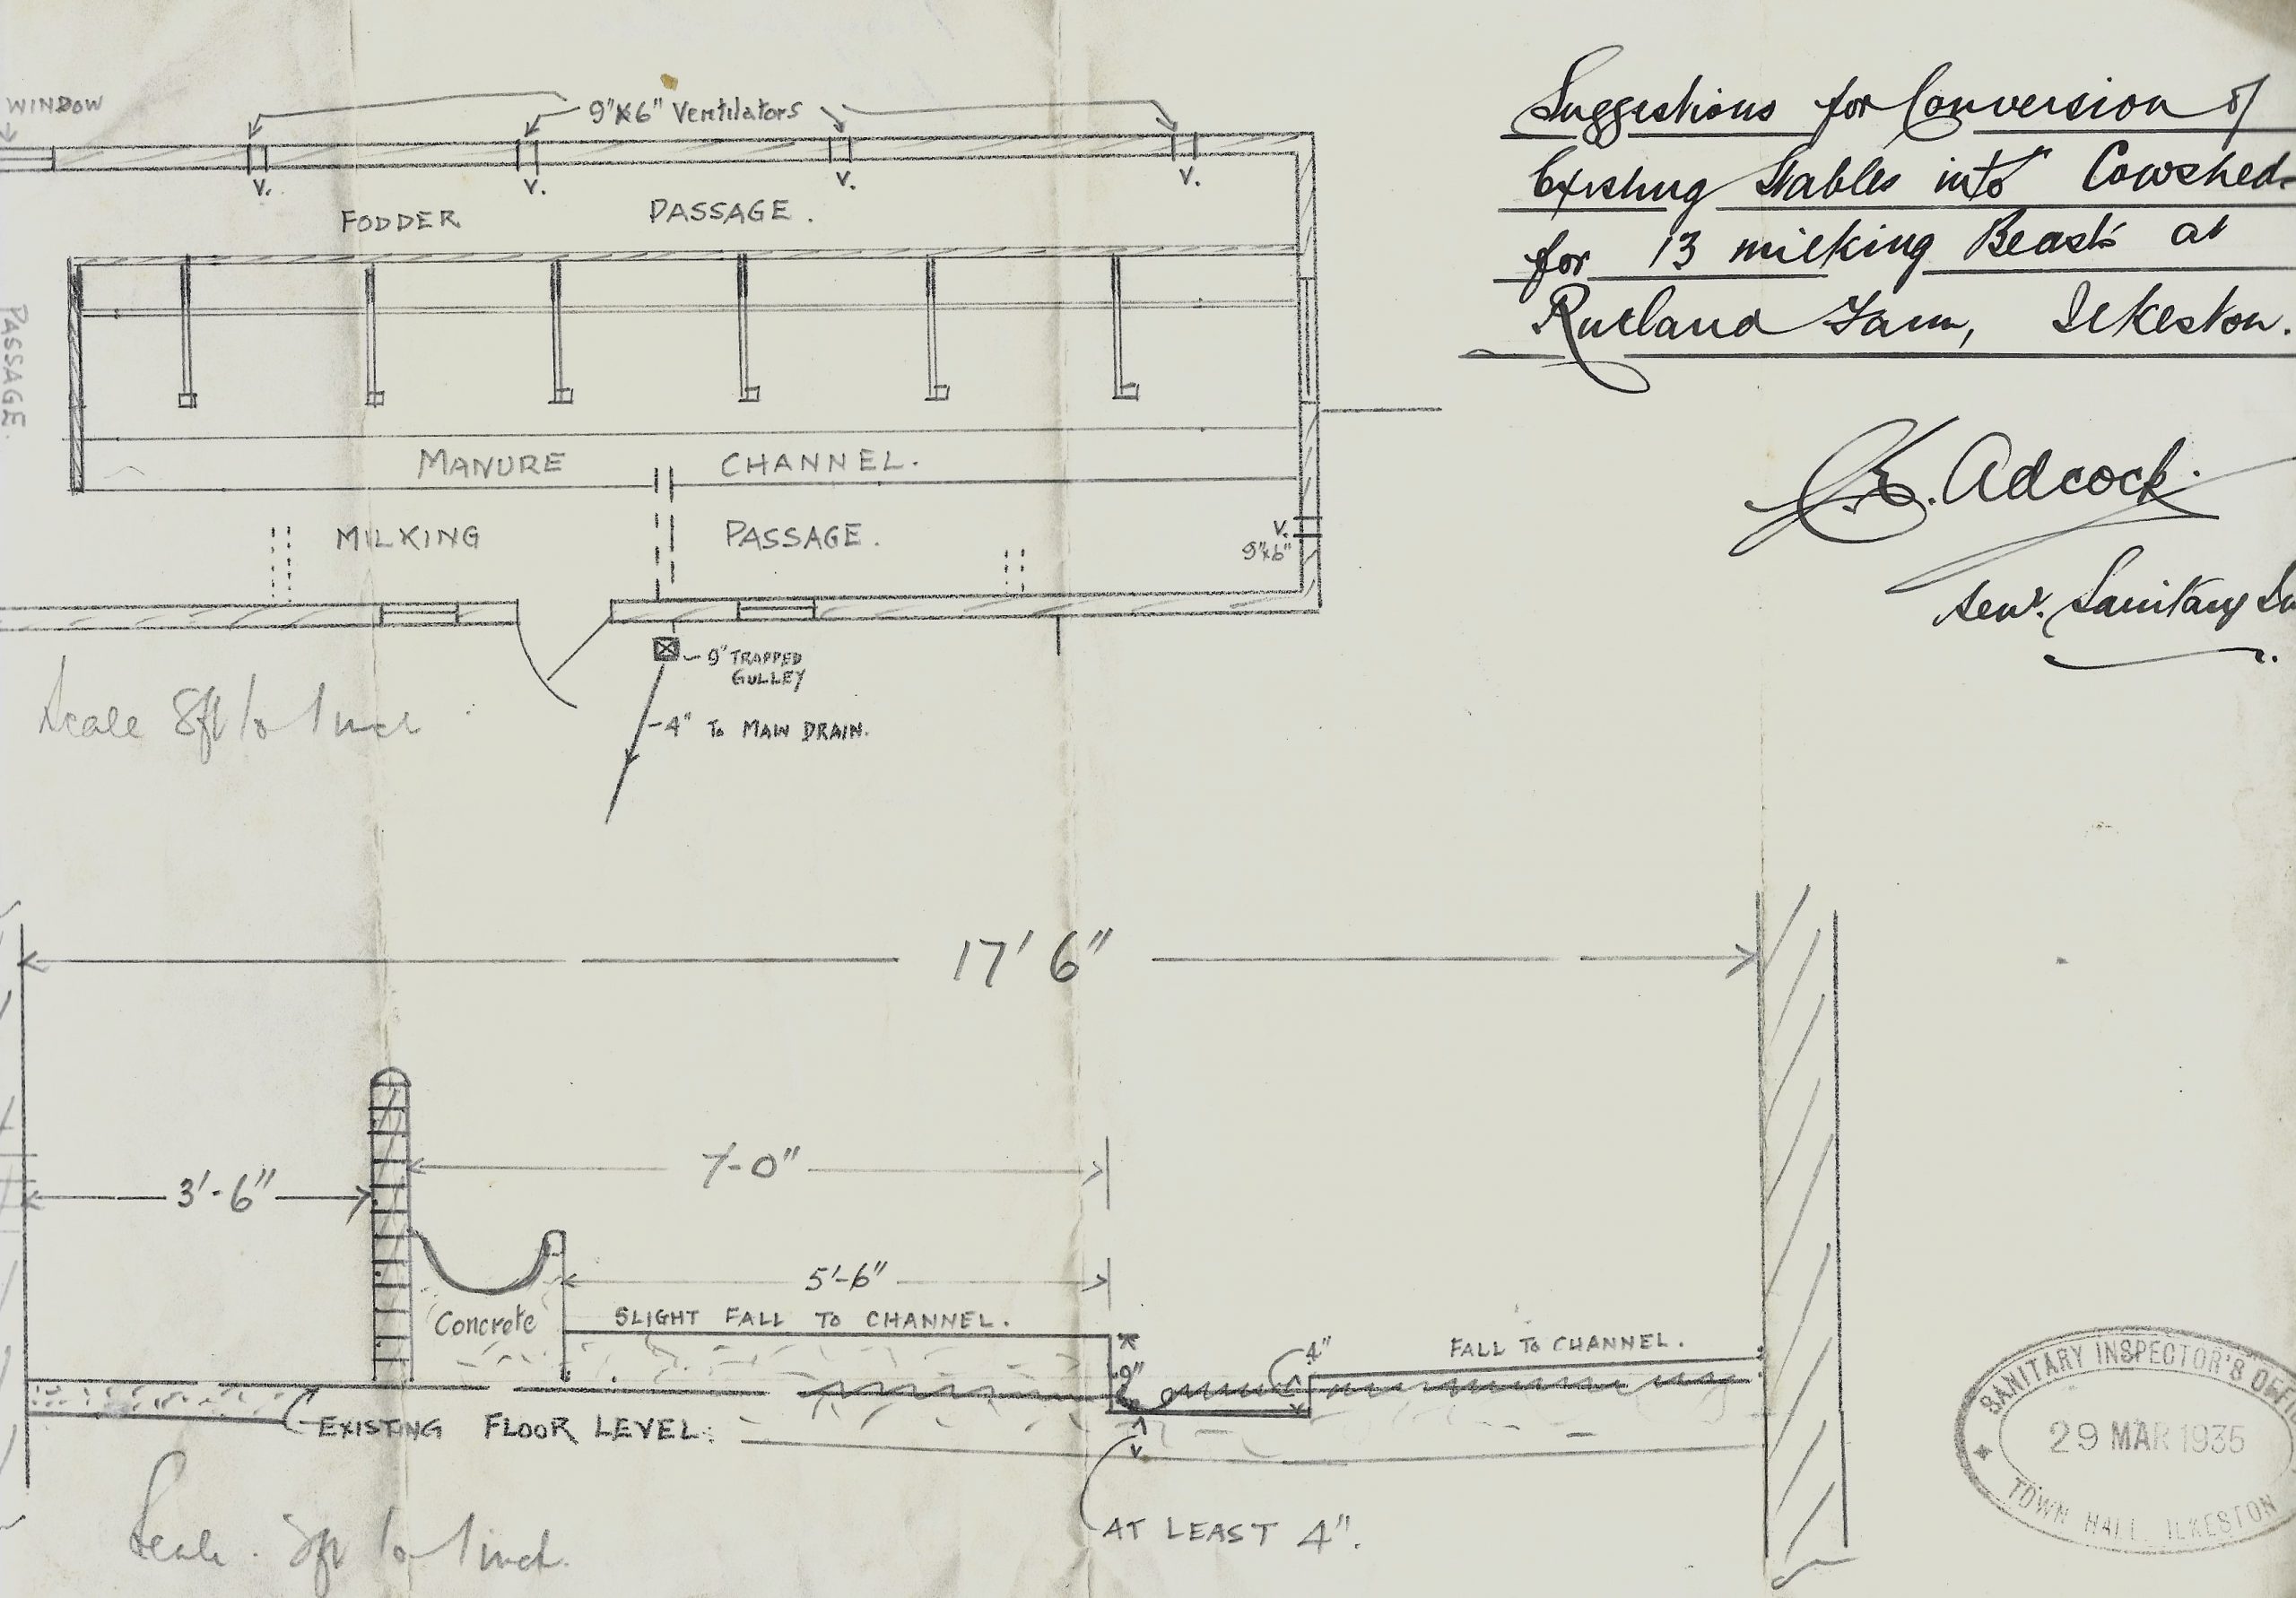 WINDOW
9"x6" Ventilators
V. V. V. V.
FODDER PASSAGE.
PASSAGE.
MANURE CHANNEL.
MILKING PASSAGE.
V.
9"x6"
9" TRAPPED
GULLEY
4" To MAIN DRAIN.
Scale 8ft to 1 inch
Suggestions for Conversion of
Existing Stables into Cowshed
for 13 milking Beasts at
Rutland Farm, Ilkeston.
Adcock.
Senr. Sanitary In
17' 6"
3'-6"
7-0"
5'-6"
Concrete
SLIGHT FALL To CHANNEL.
9"
4"
FALL To CHANNEL.
EXISTING FLOOR LEVEL.
AT LEAST 4".
Scale. ft to 1 inch.
SANITARY INSPECTOR'S
29 MAR 1935
TOWN HALL, ILKESTON